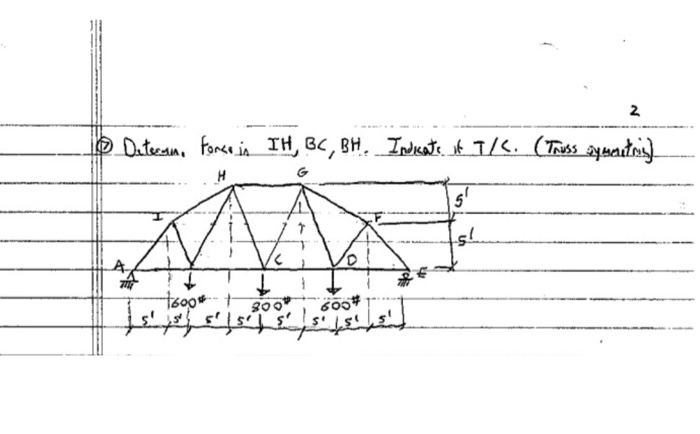 2
⑦ Determ. Force in IH, BC, BH. Indicate if T/C. (Truss symmetric)
H G
5'
I F
5'
A C D E
600# 800# 600#
5' 5' 5' 5' 5' 5' 5' 5'